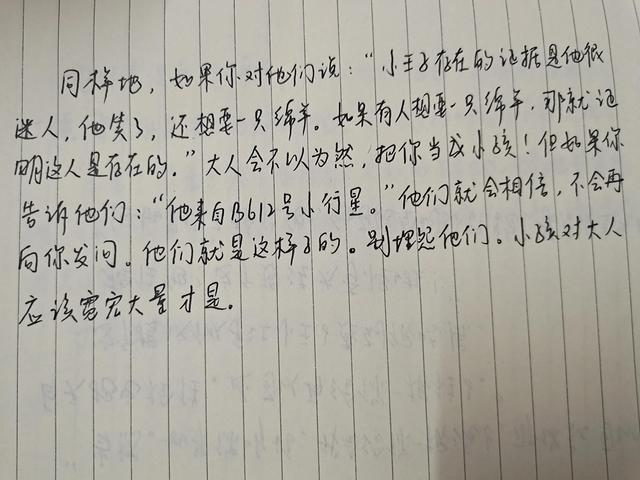 同样地，如果你对他们说：“小王子存在的证据是他很
迷人，他笑了，还想要一只绵羊。如果有人想要一只绵羊，那就证
明这人是存在的。”大人会不以为然，把你当成小孩！但如果你
告诉他们：“他来自B612号小行星。”他们就会相信，不会再
向你发问。他们就是这样子的。别埋怨他们。小孩对大人
应该宽宏大量才是。